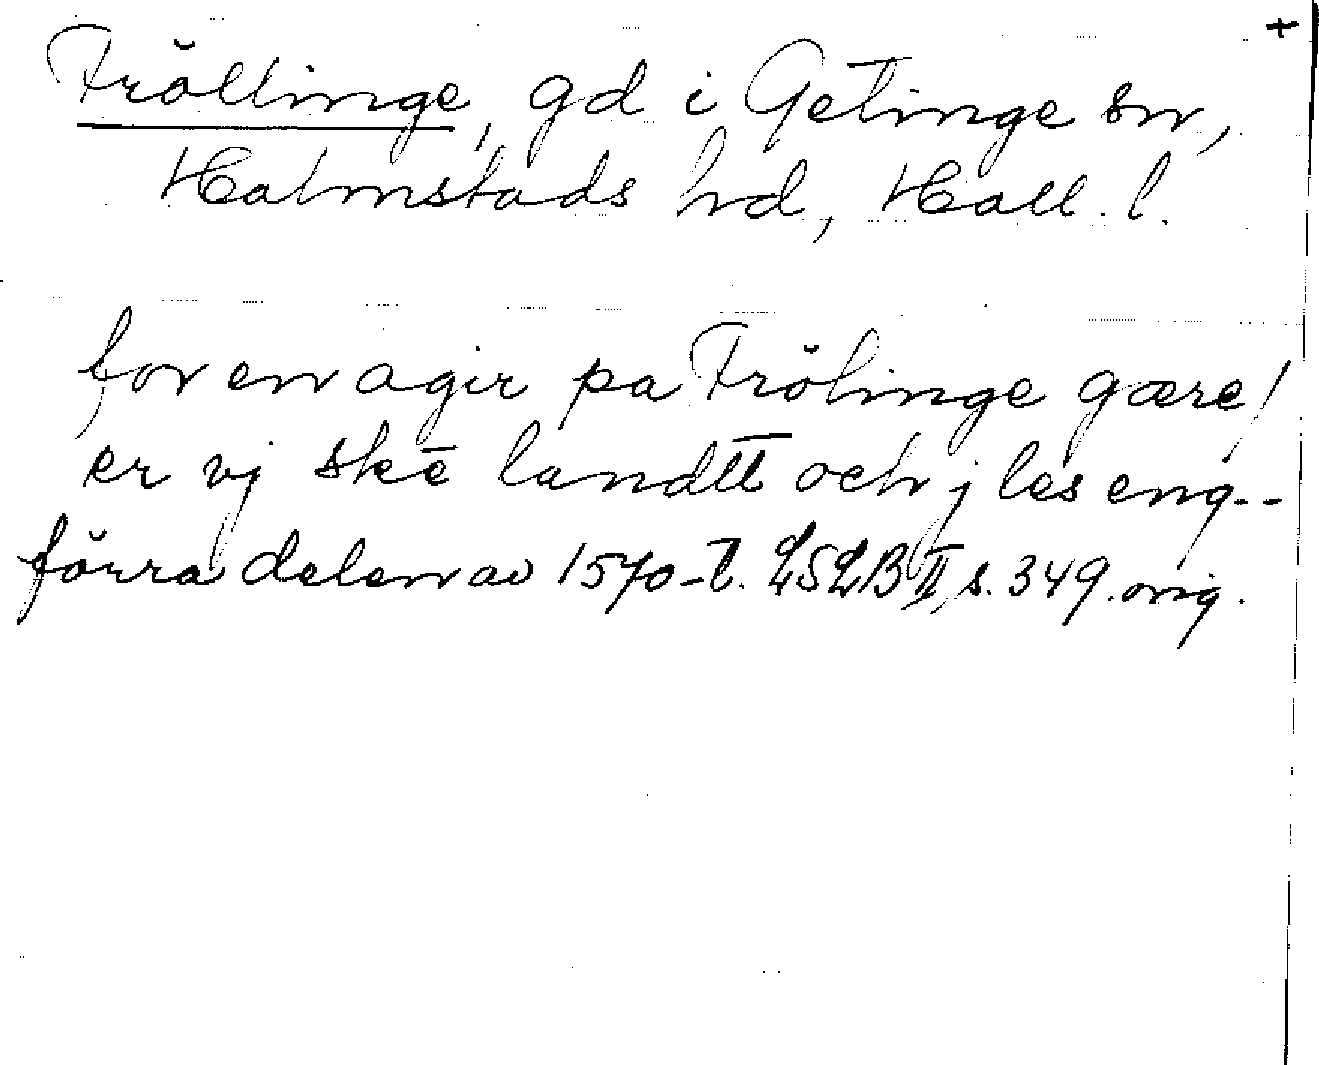 +
Fröllinge, gd i Getinge sn,
Halmstads hd, Hall. l.
for en agir pa Frölinge gære/
er vj skē landtt och j les eng--
förra delen av 1570-t. LSLB II, s. 349. orig.